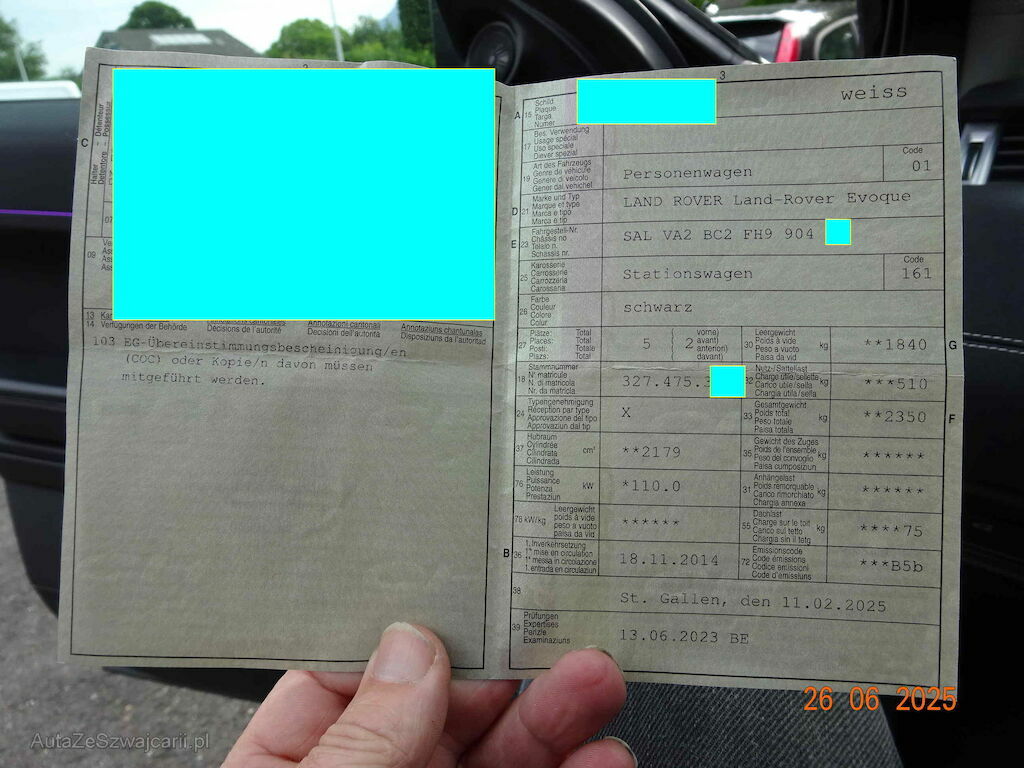 2
C
Halter Detenteur
Detentore Possessur
07
09
13
14 Verfügungen der Behörde
Décisions de l'autorité
Annotazioni cantonali
Decisioni dell'autorità
Annotaziuns chantunalas
Disposiziuns da l'autoritad
103 EG-Übereinstimmungsbescheinigung/en
(COC) oder Kopie/n davon müssen
mitgeführt werden.
3
A 15 Schild
Plaque
Targa
Numer
weiss
17 Bes. Verwendung
Usage spécial
Uso speciale
Diever spezial
19 Art des Fahrzeugs
Genre de véhicule
Genere di veicolo
Gener dal vehichel
Personenwagen
Code
01
D 21 Marke und Typ
Marque et type
Marca e tipo
Marca e tip
LAND ROVER Land-Rover Evoque
E 23 Fahrgestell-Nr.
Châssis no
Telaio n.
Schassis nr.
SAL VA2 BC2 FH9 904
25 Karosserie
Carrosserie
Carrozzeria
Carossaria
Stationswagen
Code
161
26 Farbe
Couleur
Colore
Colur
schwarz
27 Plätze: Total
Places: Total
Posti: Totale
Plazs: Total
5 ( 2 vorne)
avant)
anteriori)
davant)
30 Leergewicht
Poids à vide
Peso a vuoto
Paisa da vid
kg
**1840
G
18 Stammnummer
N° matricule
N. di matricola
Nr. da matricla
327.475.
32 Nutz-/Sattellast
Charge utile/sellette
Carico utile/sella
Chargia utila/sella
kg
***510
24 Typengenehmigung
Réception par type
Approvazione del tipo
Approvaziun dal tip
X
33 Gesamtgewicht
Poids total
Peso totale
Paisa totala
kg
**2350
F
37 Hubraum
Cylindrée
Cilindrata
Cilindrada
cm³
**2179
35 Gewicht des Zuges
Poids de l'ensemble
Peso del convoglio
Paisa cumposiziun
kg
******
76 Leistung
Puissance
Potenza
Prestaziun
kW
*110.0
31 Anhängelast
Poids remorquable
Carico rimorchiato
Chargia annexa
kg
******
78 kW/kg
Leergewicht
poids à vide
peso a vuoto
paisa da vid
******
55 Dachlast
Charge sur le toit
Carico sul tetto
Chargia sin il tetg
kg
****75
B 36 1. Inverkehrsetzung
1re mise en circulation
1a messa in circolazione
1. entrada en circulaziun
18.11.2014
72 Emissionscode
Code émissions
Codice emissioni
Code d'emissiuns
***B5b
38
St. Gallen, den 11.02.2025
39 Prüfungen
Expertises
Perizie
Examinaziuns
13.06.2023 BE
26 06 2025
AutaZeSzwajcarii.pl